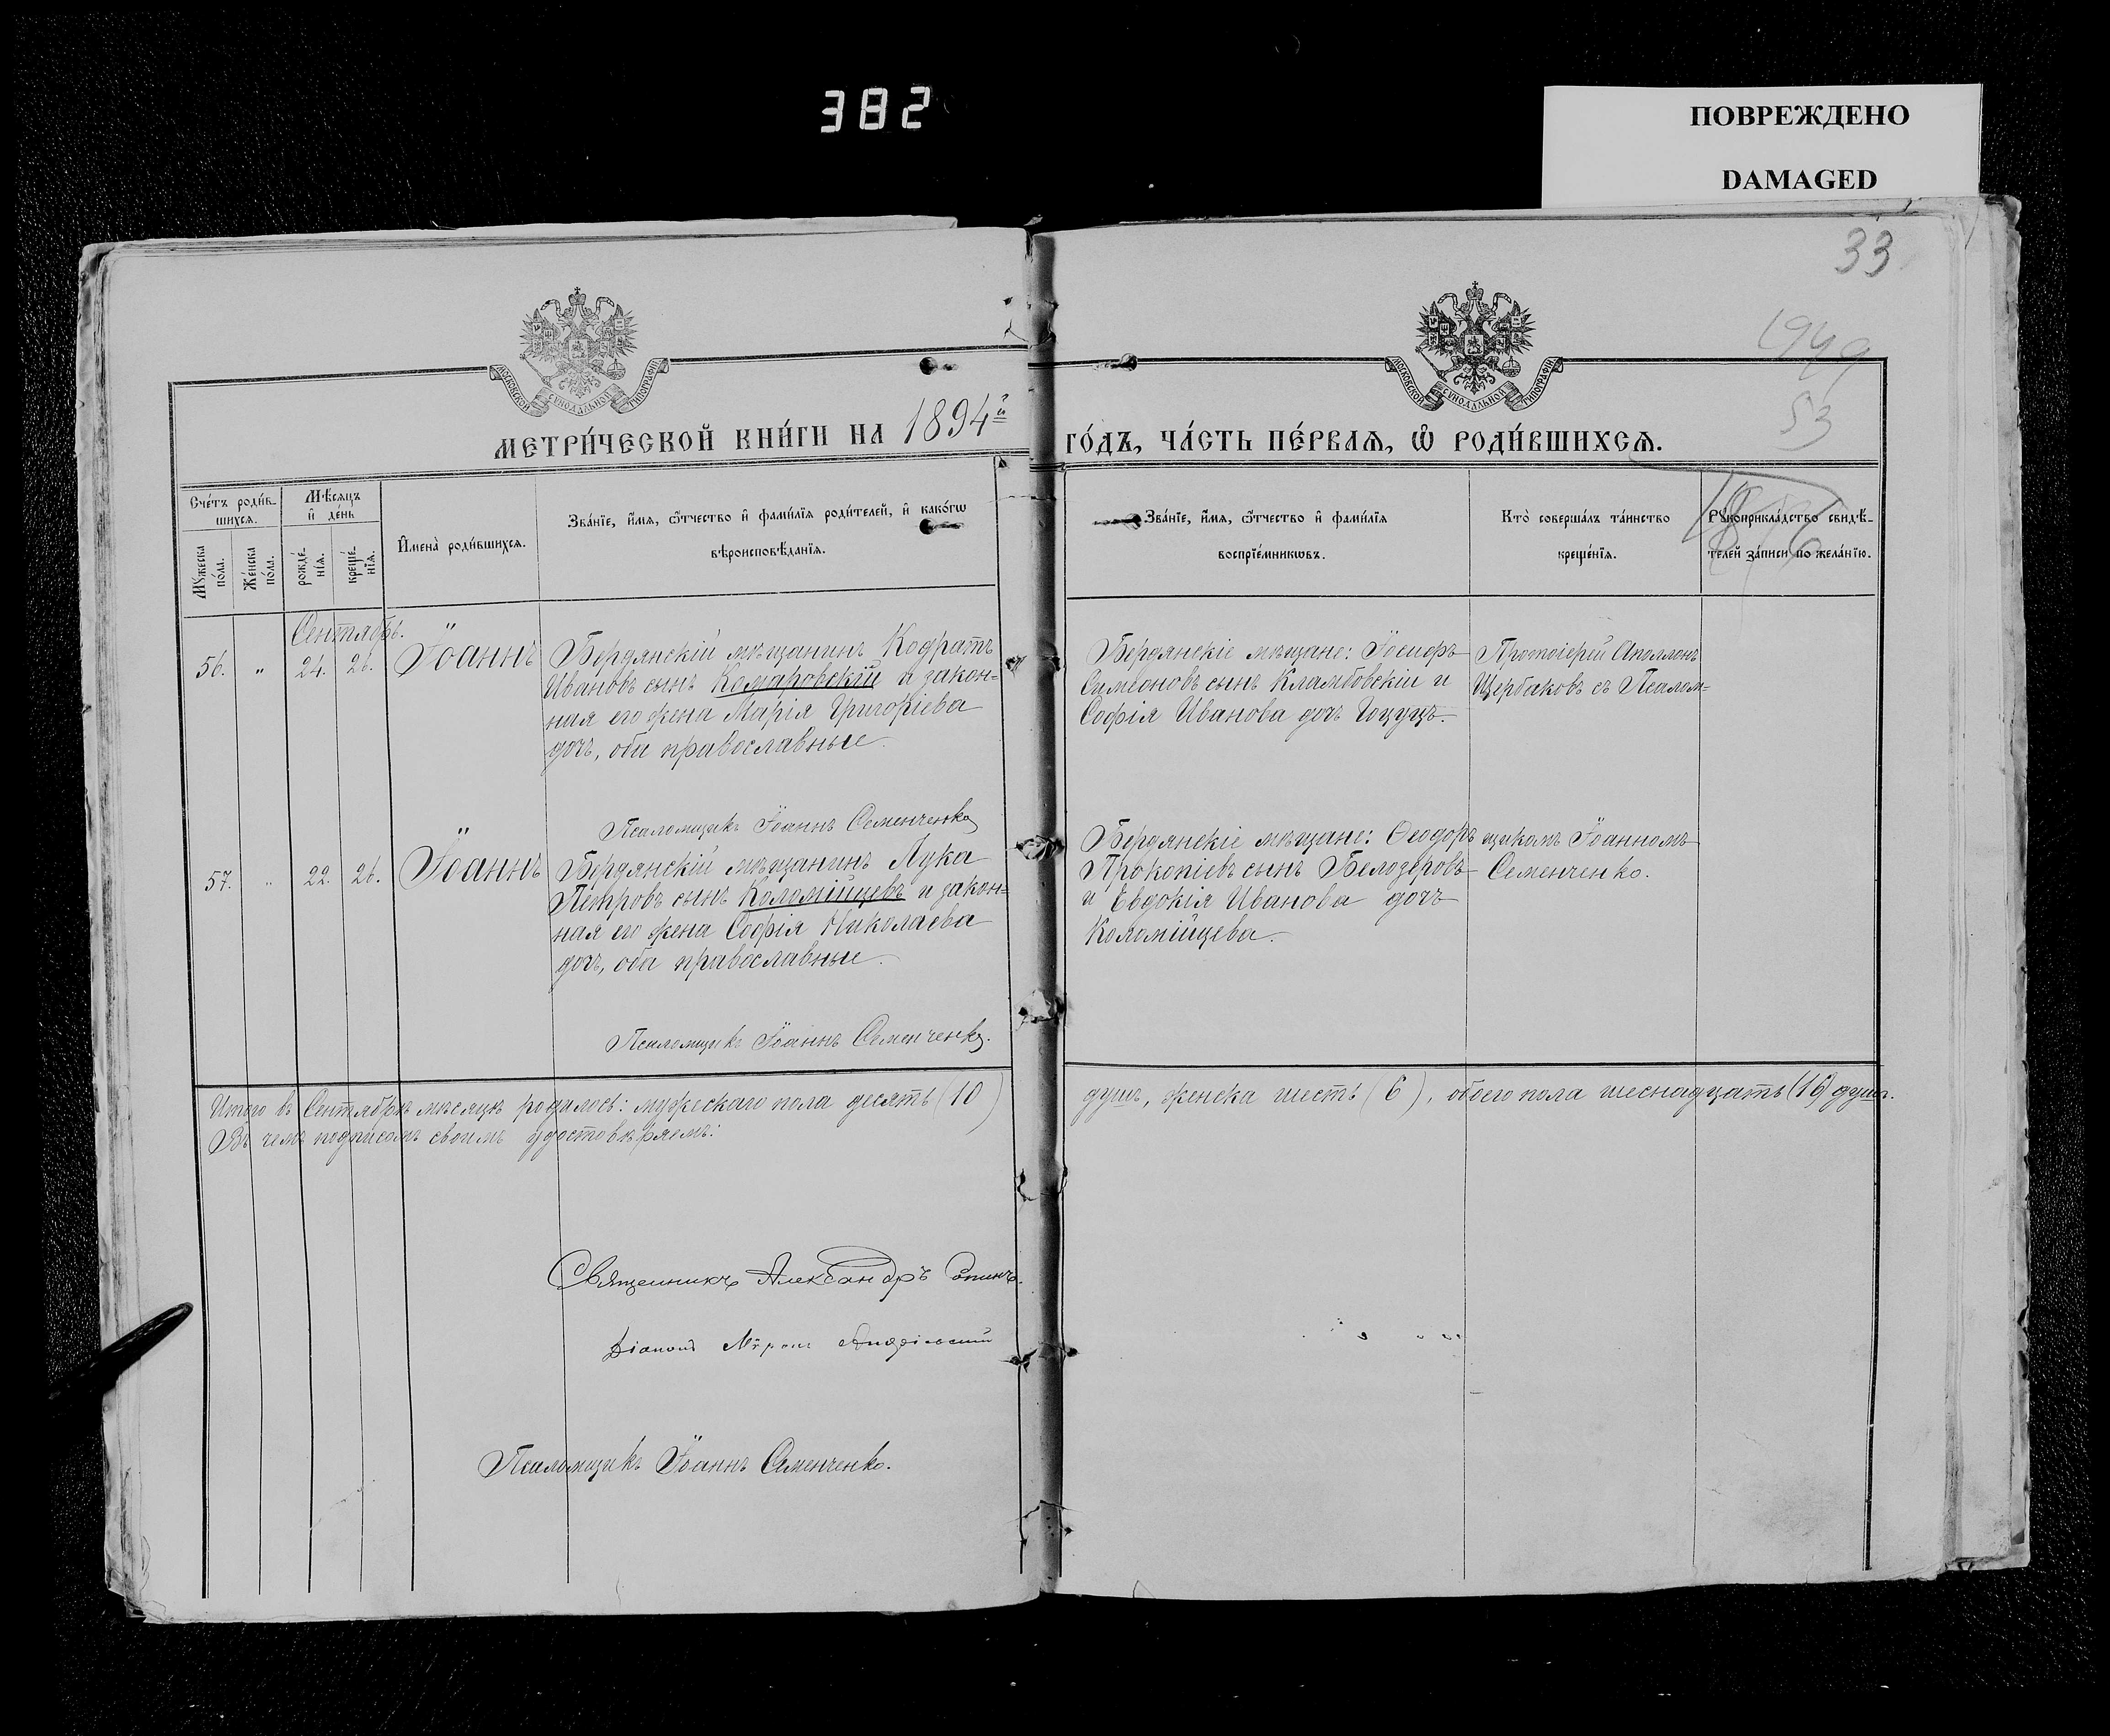 382
ПОВРЕЖДЕНО
DAMAGED
33
1949
53
МОСКОВСКОЙ СѴНОДАЛЬНОЙ ТИПОГРАФІИ
МОСКОВСКОЙ СѴНОДАЛЬНОЙ ТИПОГРАФІИ
МЕТРИ́ЧЕСКОЙ КНИ́ГИ НА 1894й ГО́ДЪ, ЧА́СТЬ ПЕ́РВАЯ, Ѡ РОДИ́ВШИХСЯ.
Сче́тъ роди́в-
шихся.
Мѣсяцъ
и де́нь
Мꙋжеска по́ла.
Же́нска по́ла.
рожде́-
нїя.
креще́-
нїя.
Имена̀ роди́вшихся.
Зва́нїе, имя, ѻтчество и фами́лїя роди́телей, и како́гѡ
вѣроисповѣданїя.
Зва́нїе, имя, ѻтчество и фами́лїя
воспрїе́мникѡвъ.
Кто̀ соверша́лъ та́инство
креще́нїя.
Рꙋкоприкла́дство свидѣ-
телей за́писи по жела́нїю.
Сентябрь.
56. „ 24. 26. Іоаннъ
Бердянскій мѣщанинъ Кодратъ
Ивановъ сынъ Комаровскій и закон=
ная его жена Марія Григоріева
дочь, оба православные.
Псаломщикъ Іоаннъ Семенченко
Бердянскіе мѣщане: Іосифъ
Симеоновъ сынъ Кламбовскій и
Софія Иванова дочь
Протоіерей Аполлонъ
Щербаковъ съ Псалом=
57. „ 22. 26. Іоаннъ
Бердянскій мѣщанинъ Лука
Петровъ сынъ Коломійцевъ и закон=
ная его жена Софія Николаева
дочь, оба православные.
Псаломщикъ Іоаннъ Семенченко.
Бердянскіе мѣщане: Ѳеодоръ
Прокопіевъ сынъ Белозеровъ
и Евдокія Иванова дочь
Коломійцева.
щикомъ Іоанномъ
Семенченко.
Итого въ Сентябрѣ мѣсяцѣ родилось: мужескаго пола десять (10) душъ, женска шесть (6), обоего пола шеснадцать (16) душъ.
Въ чемъ подписомъ своимъ удостовѣряемъ:
Священникъ Александръ
Діаконъ
Псаломщикъ Іоаннъ Семенченко.